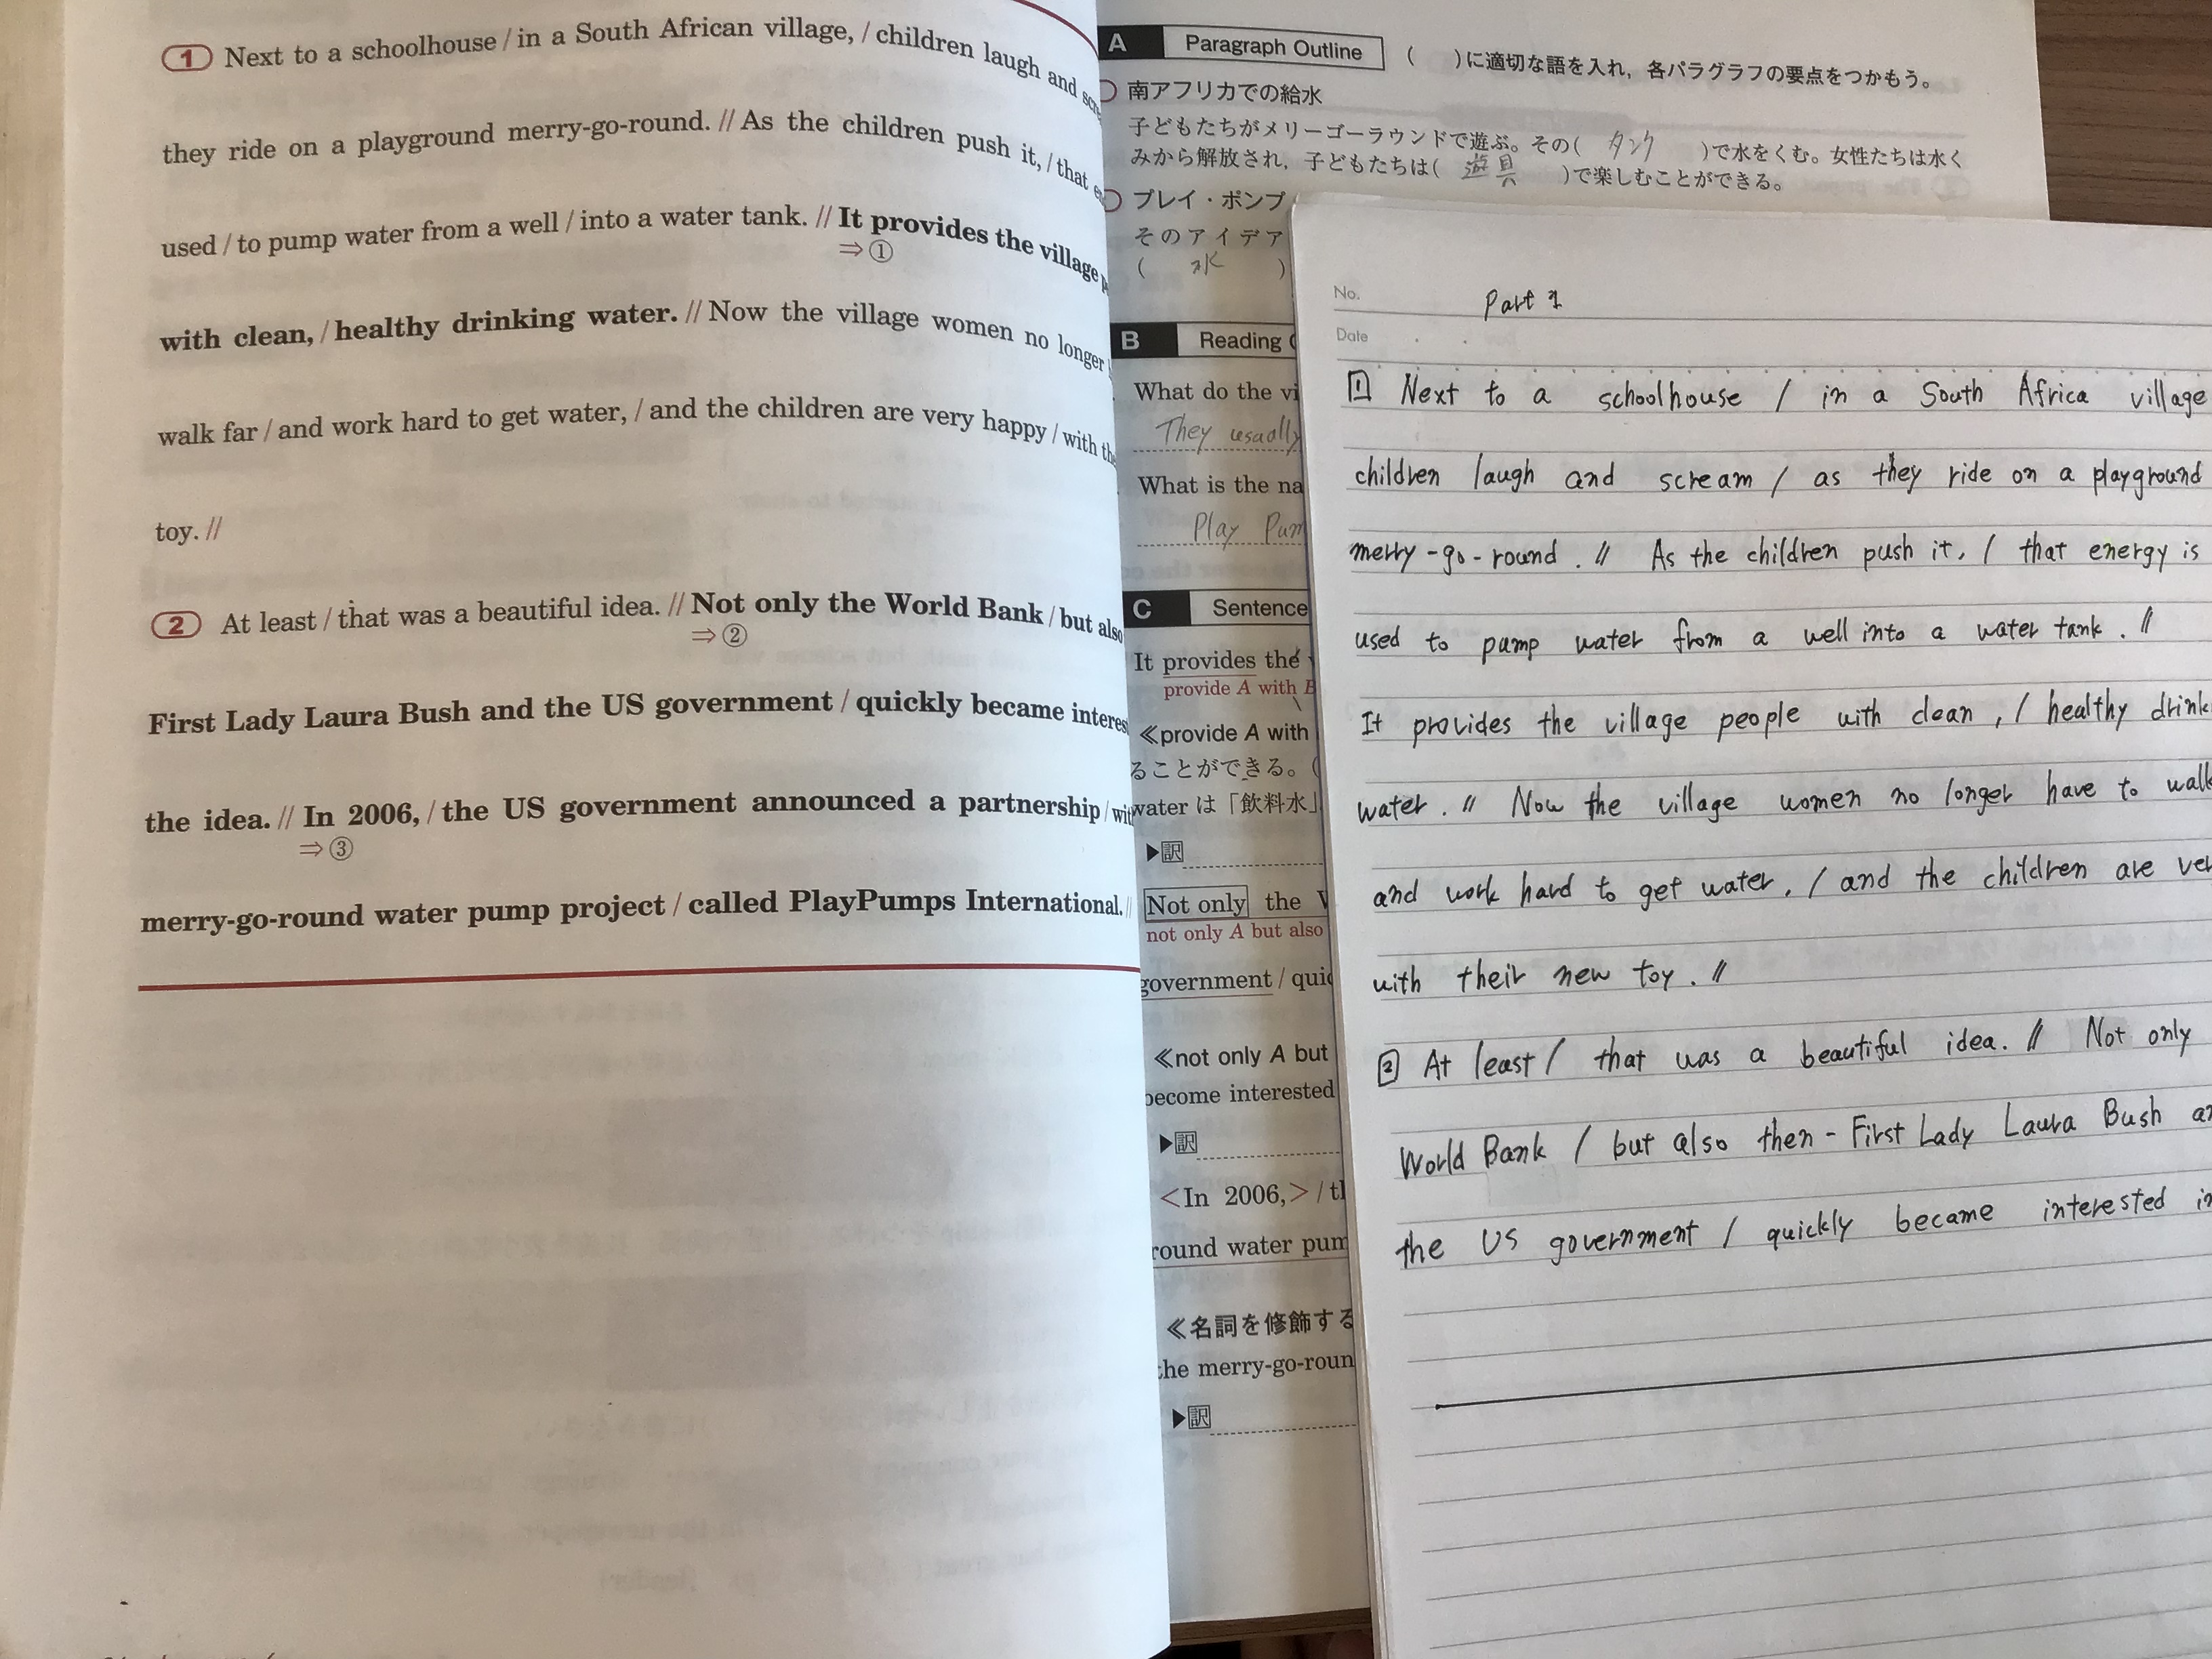 1 Next to a schoolhouse / in a South African village, / children laugh and
they ride on a playground merry-go-round. // As the children push it, / that
used / to pump water from a well / into a water tank. // It provides the village
⇒①
with clean, / healthy drinking water. // Now the village women no longer
walk far / and work hard to get water, / and the children are very happy / with
toy. //
2 At least / that was a beautiful idea. // Not only the World Bank / but also
⇒②
First Lady Laura Bush and the US government / quickly became
the idea. // In 2006, / the US government announced a partnership /
⇒③
merry-go-round water pump project / called PlayPumps International. //
A Paragraph Outline ( )に適切な語を入れ，各パラグラフの要点をつかもう。
南アフリカでの給水
子どもたちがメリーゴーラウンドで遊ぶ。その( タンク )で水をくむ。女性たちは水く
みから解放され，子どもたちは( 遊具 )で楽しむことができる。
プレイ・ポンプ
そのアイデア
( 水 )
B Reading
What do the
They usually
What is the
Play
C Sentence
It provides the
provide A with B
≪provide A with
ることができる。(
water は「飲料水」
▶訳
Not only the
not only A but also
government /
≪not only A but
become interested
▶訳
<In 2006,> /
round water
≪名詞を修飾する
the
▶訳
No. Part 1
Date
1 Next to a schoolhouse / in a South Africa village
children laugh and scream / as they ride on a playground
merry-go-round. // As the children push it, / that energy is
used to pump water from a well into a water tank. //
It provides the village people with clean, / healthy
water. // Now the village women no longer have to walk
and work hard to get water, / and the children are
with their new toy. //
2 At least / that was a beautiful idea. // Not only
World Bank / but also then-First Lady Laura Bush
the US government / quickly became interested in